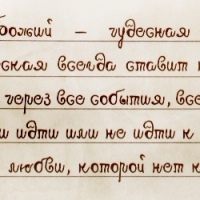 Божий — чудесная
сная всегда ставит
через все события, все
и идти или не идти к
любви, которой нет к